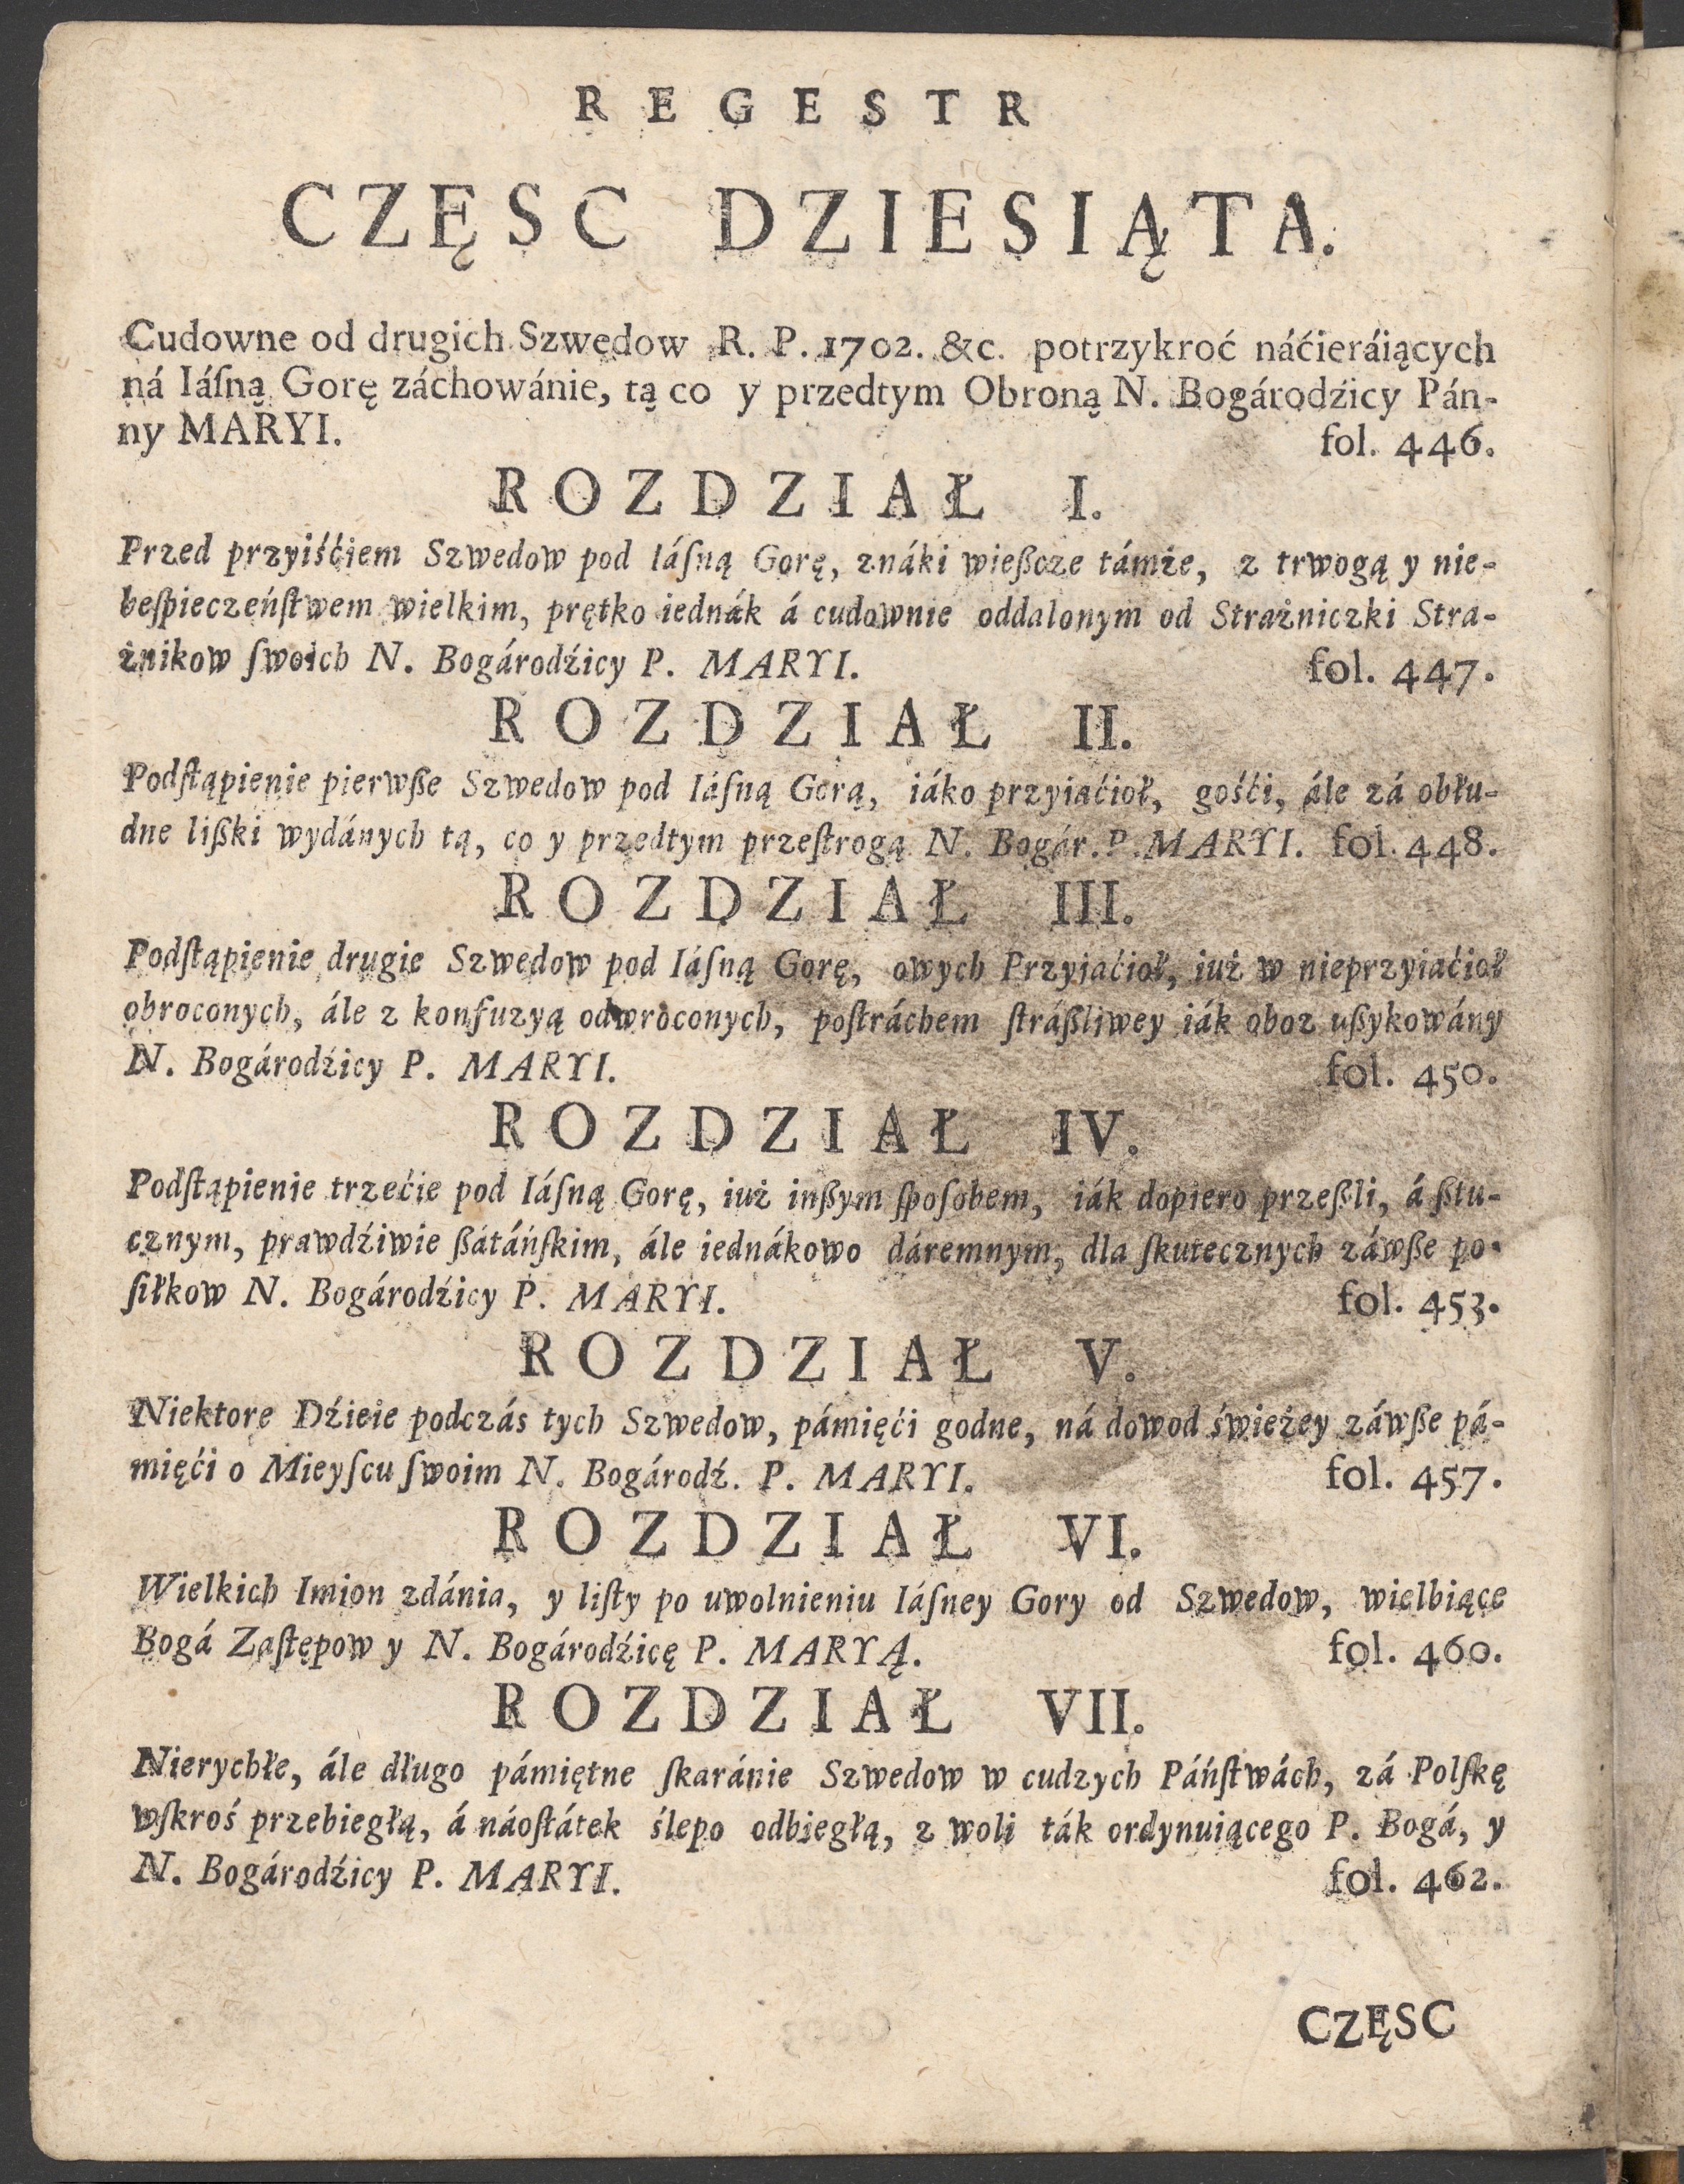 REGESTR
CZĘSC DZIESIĄTA.
Cudowne od drugich Szwedow R. P. 1702. &c. potrzykroć náćieráiących
ná Iáſną Gorę záchowánie, tą co y przedtym Obroną N. Bogárodźicy Pán-
ny MARYI. fol. 446.
ROZDZIAŁ I.
Przed przyiśćiem Szwedow pod Iáſną Gorę, znáki wießcze támże, z trwogą y nie-
beſpieczeńſtwem wielkim, prętko iednák á cudownie oddalonym od Strażniczki Stra-
żnikow ſwoich N. Bogárodźicy P. MARYI. fol. 447.
ROZDZIAŁ II.
Podſtąpienie pierwße Szwedow pod Iáſną Gorą, iáko przyiaćioł, gośći, ále zá obłu-
dne lißki wydánych tą, co y przedtym przeſtrogą N. Bogár. P. MARYI. fol. 448.
ROZDZIAŁ III.
Podſtąpienie drugie Szwedow pod Iáſną Gorę, owych Przyiaćioł, iuż w nieprzyiaćioł
obroconych, ále z konfuzyą odwroconych, poſtráchem ſtráßliwey iák oboz ußykowány
N. Bogárodźicy P. MARYI. fol. 450.
ROZDZIAŁ IV.
Podſtąpienie trzećie pod Iáſną Gorę, iuż inßym ſpoſobem, iák dopiero przeßli, á ßtu-
cznym, prawdźiwie ßátáńſkim, ále iednákowo dáremnym, dla ſkutecznych záwße po-
ſiłkow N. Bogárodźicy P. MARYI. fol. 453.
ROZDZIAŁ V.
Niektore Dźieie podczás tych Szwedow, pámięći godne, ná dowod świeżey záwße pá-
mięći o Mieyſcu ſwoim N. Bogárodź. P. MARYI. fol. 457.
ROZDZIAŁ VI.
Wielkich Imion zdánia, y liſty po uwolnieniu Iáſney Gory od Szwedow, wielbiące
Bogá Zaſtępow y N. Bogárodźicę P. MARYĄ. fol. 460.
ROZDZIAŁ VII.
Nierychłe, ále długo pámiętne ſkaránie Szwedow w cudzych Páńſtwách, zá Polſkę
wſkroś przebiegłą, á náoſtátek ślepo odbiegłą, z woli ták ordynuiącego P. Bogá, y
N. Bogárodźicy P. MARYI. fol. 462.
CZĘSC